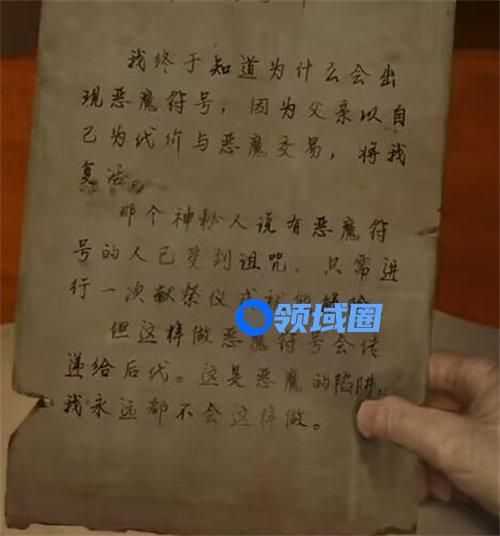 我终于知道为什么会出
现恶魔符号，因为父亲以自
己为代价与恶魔交易，将我
复活。
那个神秘人说有恶魔符
号的人已受到诅咒，只需进
行一次献祭仪式
领域圈
但这样做恶魔符号会传
递给后代。这是恶魔的陷阱，
我永远都不会这样做。